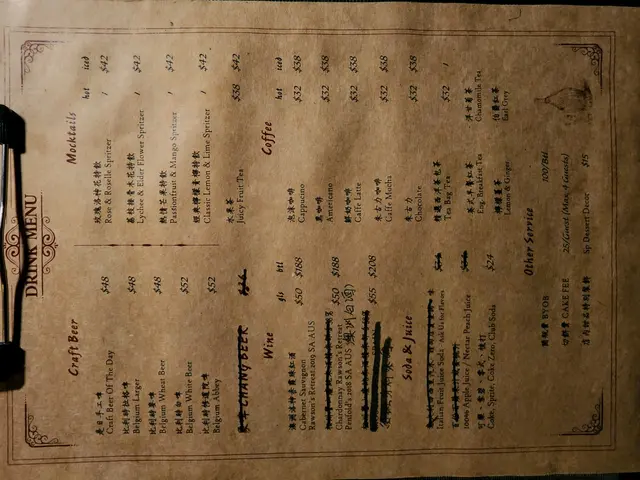 DRINK MENU
Craft Beer
是日手工啤 $48
Craft Beer Of The Day
比利時拉格啤 $48
Belgium Larger
比利時麥啤 $48
Belgium Wheat Beer
比利時白啤 $52
Belgium White Beer
比利時修道院啤 $52
Belgium Abbey
CHANG BEER
Wine gls btl
澳洲洛神奈莊紅酒 $50 $188
Cabernet Sauvignon
Rawson's Retreat 2019 SA AUS
$50 $188
Chardonnay Rawson's Retreat
Penfold's 2018 SA AUS
$55 $208
Soda & Juice
Italian Fruit Juice Soda Ask Us the Flavors
100% Apple Juice / Nectar Peach Juice
可樂、雪碧、梳打 $24
Coke, Sprite, Coke Zero, Club Soda
Mocktails hot iced
玫瑰洛神花特飲 / $42
Rose & Roselle Spritzer
荔枝接骨木花特飲 / $42
Lychee & Elder Flower Spritzer
熱情芒果特飲 / $42
Passionfruit & Mango Spritzer
經典檸檬青檸特飲 / $42
Classic Lemon & Lime Spritzer
水果茶 $38 $42
Juicy Fruit Tea
Coffee hot iced
泡沫咖啡 $32 $38
Cappucino
黑咖啡 $32 $38
Americano
鮮奶咖啡 $32 $38
Caffe Latte
朱古力咖啡 $32 $38
Caffe Mocha
朱古力 $32 $38
Chocolate
精選西洋茶包茶 $32 /
Tea Bag Tea
英式早餐紅茶 洋甘菊茶
Eng. Breakfast Tea Chamomile Tea
檸檬薑茶 伯爵紅茶
Lemon & Ginger Earl Grey
Other Service
開瓶費 BYOB 100/Btl
切餅費 CAKE FEE 25/Guest (Max. 4 Guests)
Sp Dessert Decor $15